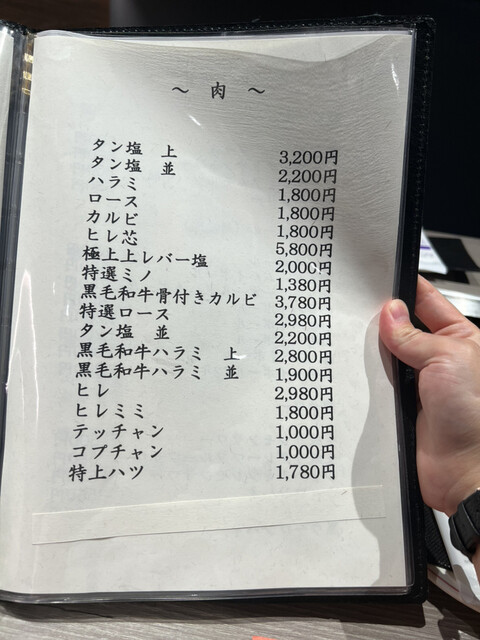 ～ 肉 ～
タン塩 上 3,200円
タン塩 並 2,200円
ハラミ 1,800円
ロース 1,800円
カルビ 1,800円
ヒレ芯 5,800円
極上上レバー塩 2,000円
特選ミノ 1,380円
黒毛和牛骨付きカルビ 3,780円
特選ロース 2,980円
タン塩 並 2,200円
黒毛和牛ハラミ 上 2,800円
黒毛和牛ハラミ 並 1,900円
ヒレ 2,980円
ヒレミミ 1,800円
テッチャン 1,000円
コプチャン 1,000円
特上ハツ 1,780円